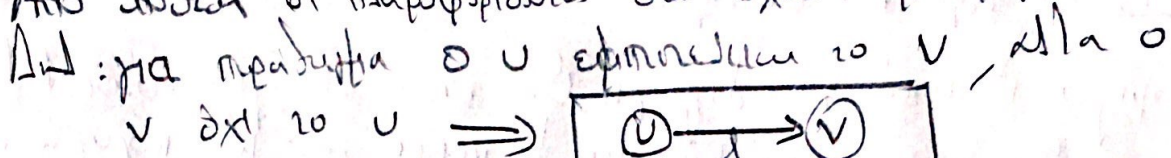 για παράδειγμα ο υ εμπιστεύεται το v, αλλά ο
v όχι το υ ⟹ υ → v